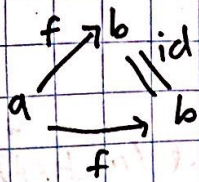 f b
id
a b
f